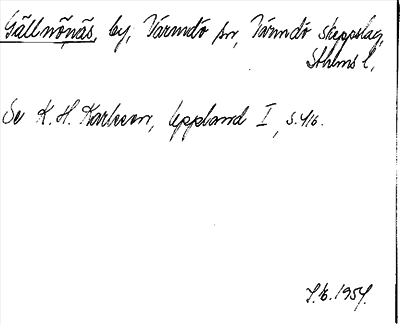 Gällnönäs, by, Värmdö sn, Värmdö skeppslag,
Sthlms l.
Se K. H. Karlsson, Uppland I, s. 416.
1954.